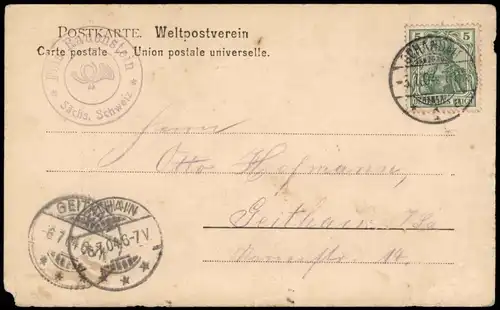 POSTKARTE. Weltpostverein
Carte postale Union postale universelle.
Sächs. Schweiz
5 5
Herrn
Otto Hofmann,
Geithain i/Sa.
14.
GEITHAIN
6.7.04.6-7V.